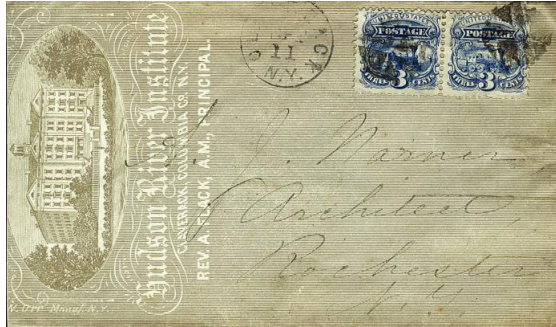 Hudson River Institute
CLAVERACK, COLUMBIA CO. N.Y.
REV. A. FLACK, A.M., PRINCIPAL.
N. Orr Manuf. N.Y.
11
N.Y.
POSTAGE
3
CENTS
UNITED STATES
POSTAGE
THREE 3 CENTS
A. J. Warner,
Architect,
Rochester
N.Y.